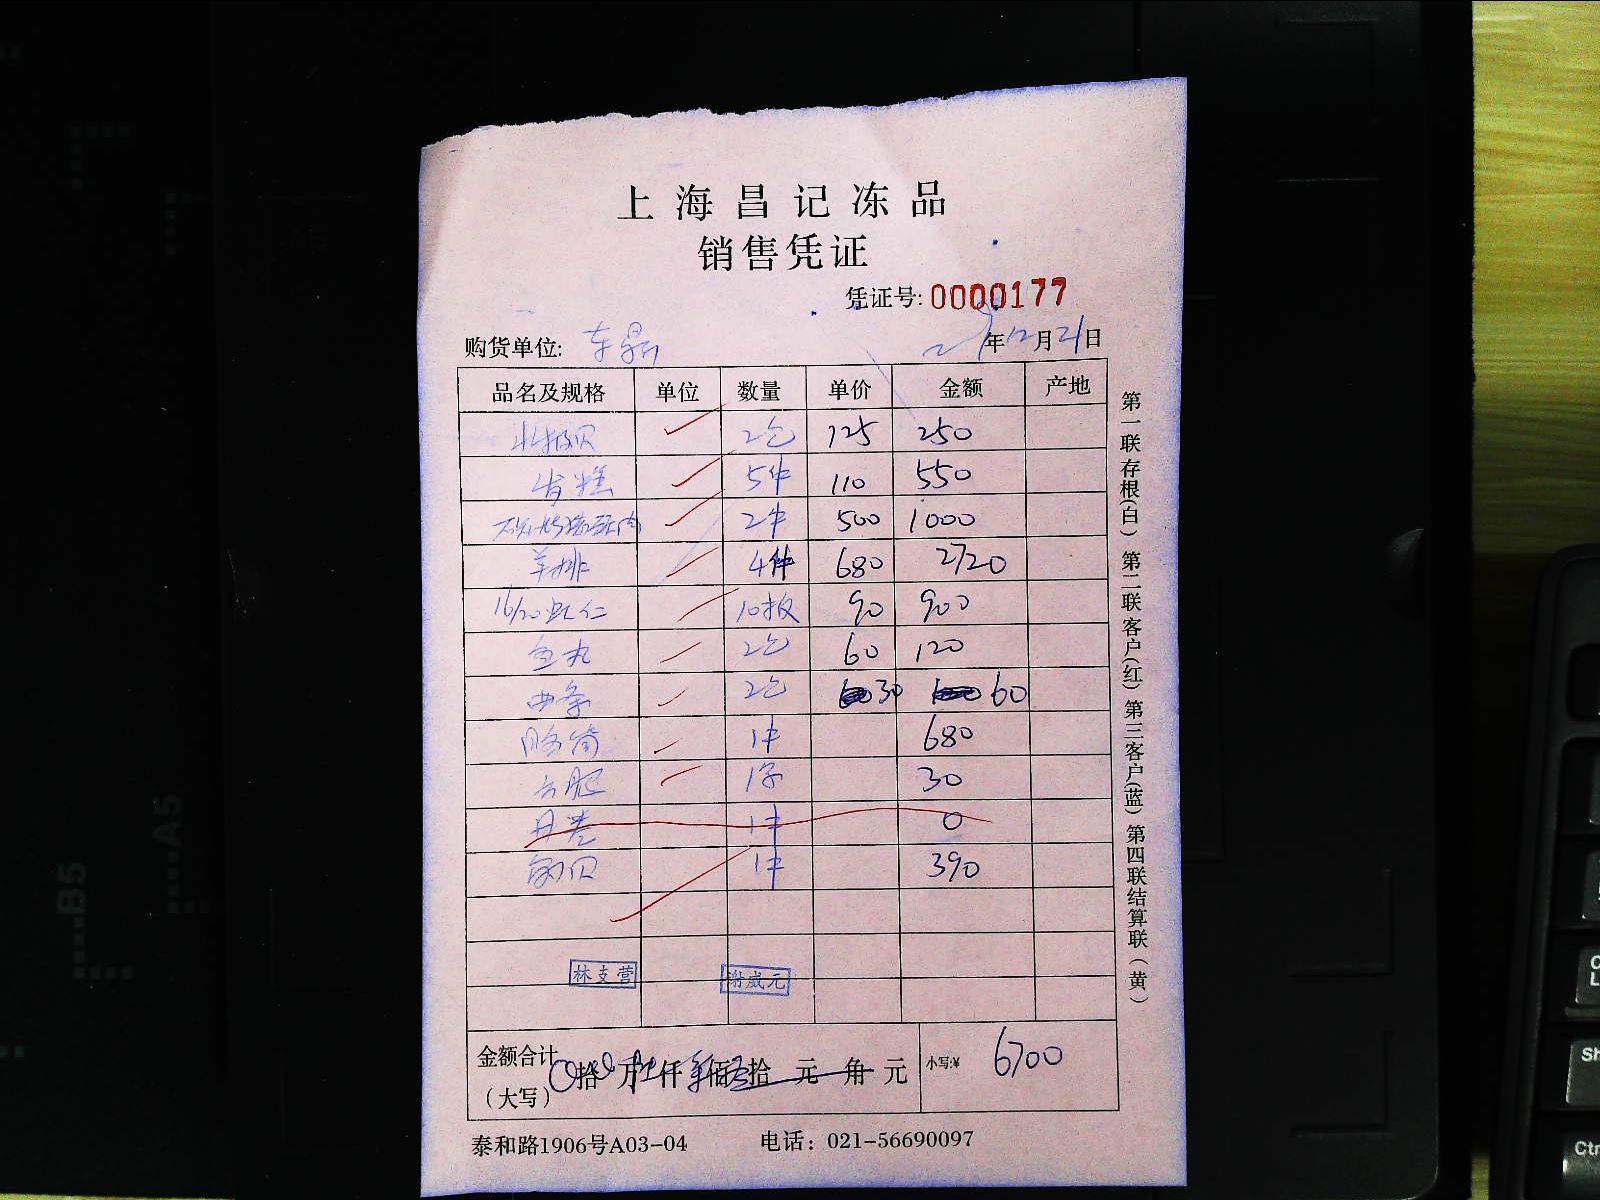 上海昌记冻品
销售凭证
凭证号: 0000177
购货单位: 东鼎 年12月21日
品名及规格 单位 数量 单价 金额 产地
2包 125 250
5件 110 550
2件 500 1000
羊排 4件 680 2720
16/20虾仁 10板 90 900
鱼丸 2包 60 120
2包 30 60
1件 680
1 30
1件 0
1件 390
林支营 谢威元
金额合计 拾 万 仟 佰 拾 元 角 元 小写:¥ 6700
(大写)
泰和路1906号A03-04 电话: 021-56690097
第一联存根(白) 第二联客户(红) 第三客户(蓝) 第四联结算联(黄)
B5
A5